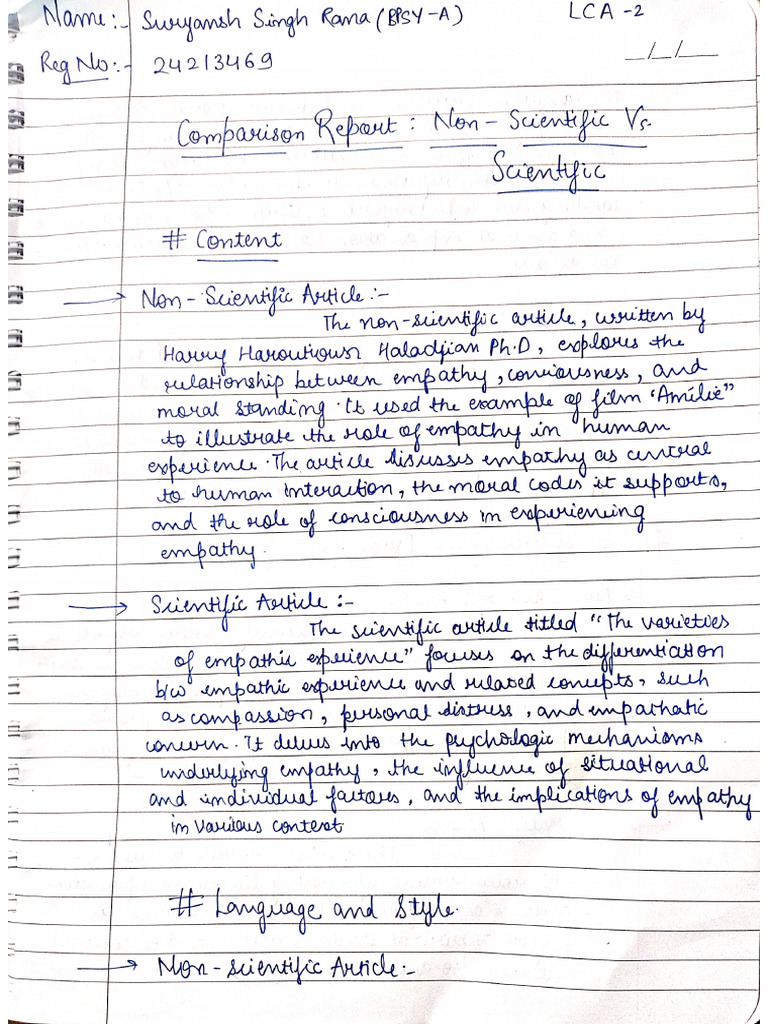 Name:- Suryansh Singh Rana (BPSY-A) LCA -2
Reg No:- 24213469 _/_/__
Comparison Report: Non-Scientific Vs.
Scientific
# Content
→ Non-Scientific Article:-
The non-scientific article, written by
Harry Haroutioun Haladjian Ph.D, explores the
relationship between empathy, conciousness, and
moral standing. It used the example of film "Amélie"
to illustrate the role of empathy in human
experience. The article discusses empathy as central
to human interaction, the moral codes it supports,
and the role of consciousness in experiencing
empathy.
→ Scientific Article:-
The scientific article titled "The varieties
of empathic experience" focuses on the differentiation
b/w empathic experience and related concepts, such
as compassion, personal distress, and empathatic
concern. It delves into the psychologic mechanisms
underlying empathy, the influence of situational
and individual factors, and the implications of empathy
in various context
# Language and Style.
→ Non-scientific Article:-